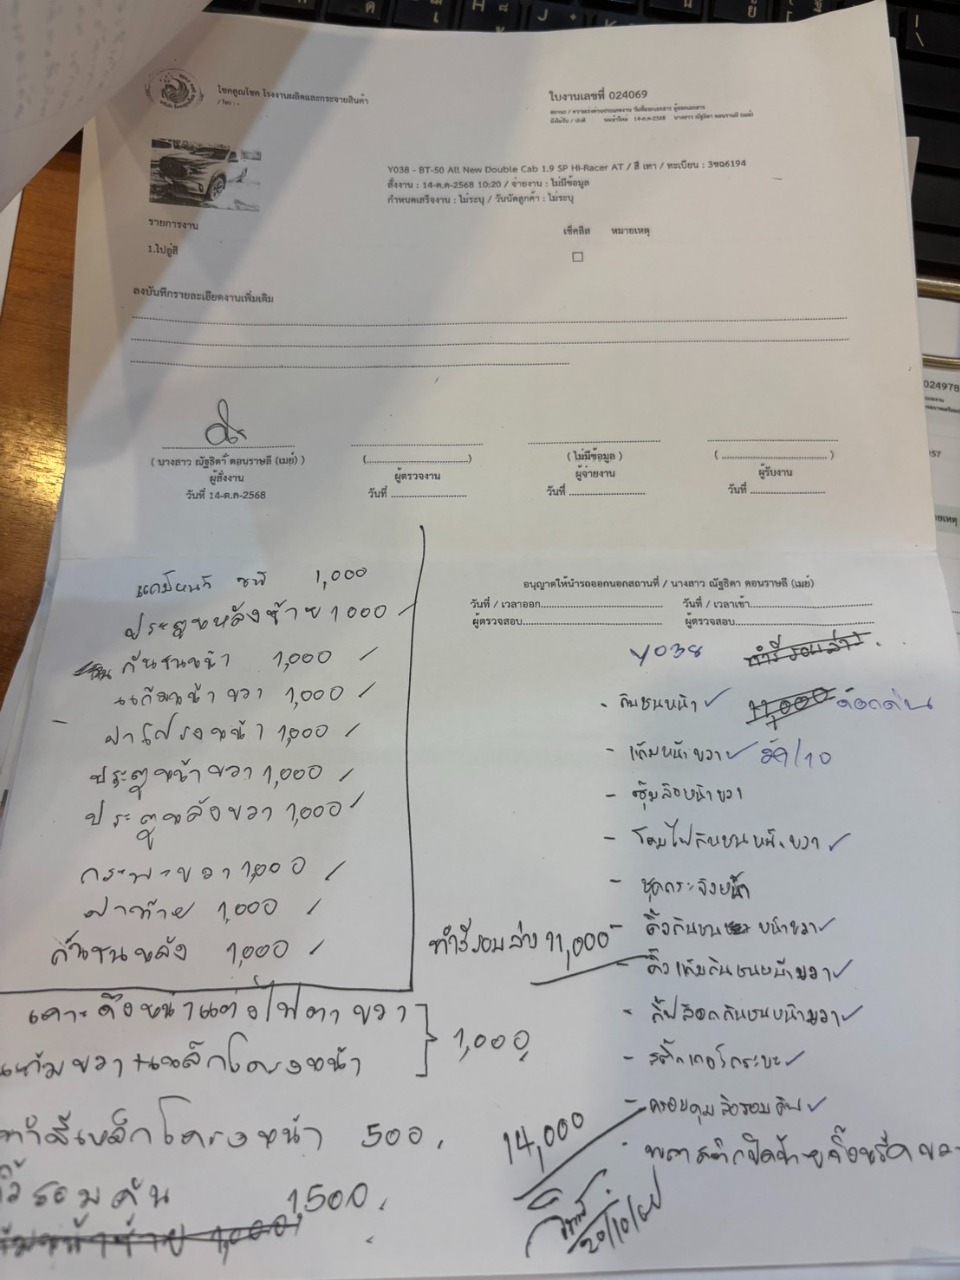 โชคคูณโชค โรงงานผลิตและกระจายสินค้า
ใบงานเลขที่ 024069
Y038 - BT-50 All New Double Cab 1.9 SP Hi-Racer AT / สี เทา / ทะเบียน : 3ขฉ6194
สั่งงาน : 14-ต.ค-2568 10:20 / จ่ายงาน : ไม่มีข้อมูล
กำหนดเสร็จงาน : ไม่ระบุ / วันนัดลูกค้า : ไม่ระบุ
รายการงาน
เช็คลิส หมายเหตุ
1.ไปอู่สี
ลงบันทึกรายละเอียดงานเพิ่มเติม
( นางสาว ณัฐธิดา ดอนราษลี (เมย์) )
ผู้สั่งงาน
วันที่ 14-ต.ค-2568
(........................)
ผู้ตรวจงาน
วันที่ ........................
( ไม่มีข้อมูล )
ผู้จ่ายงาน
วันที่ ........................
(........................)
ผู้รับงาน
วันที่ ........................
อนุญาตให้นำรถออกนอกสถานที่ / นางสาว ณัฐธิดา ดอนราษลี (เมย์)
วันที่ / เวลาออก........................ วันที่ / เวลาเข้า........................
ผู้ตรวจสอบ........................ ผู้ตรวจสอบ........................
1,000
ประตูหลังซ้าย 1000
กันชนหน้า 1,000
แก้มหน้าขวา 1,000
ฝากระโปรงหน้า 1,000
ประตูหน้าขวา 1,000
ประตูหลังขวา 1,000
กระบะขวา 1,000
ฝาท้าย 1,000
กันชนหลัง 1,000
เคาะดึงหน้าแต่งไฟตาขวา
แก้มขวา+เหล็กโครงหน้า 1,000
ทำสีเหล็กโครงหน้า 500
สีรอบคัน 1,500
Y038 ทำสีรอบล่าง
- กันชนหน้า 11,000
- แก้มหน้าขวา
- ซุ้มล้อหน้าขวา
- โคมไฟกันชนหน้าขวา
- ชุดกระจังหน้า
ทำสีรอบล่าง 11,000
- กิ๊บกันชน หน้าขวา
- กิ๊บแก้มกันชนหน้าขวา
- กิ๊ปล็อคกันชนหน้าขวา
- สติ๊กเกอร์กระบะ
14,000
20/10/68
024978